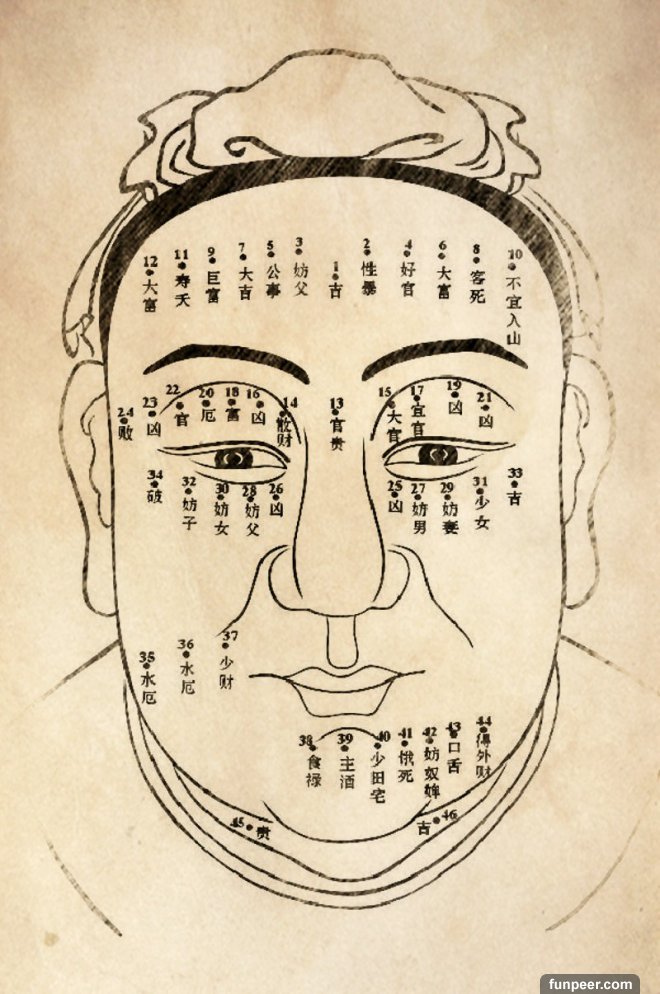 12 大富
11 寿夭
9 巨富
7 大吉
5 公事
3 妨父
1 吉
2 性暴
4 好官
6 大富
8 客死
10 不宜入山
24 败
23 凶
22 官
20 厄
18 富
16 凶
14 散财
13 官贵
15 大官
17 宜官
19 凶
21 凶
34 破
32 妨子
30 妨女
28 妨父
26 凶
25 凶
27 妨男
29 妨妻
31 少女
33 吉
35 水厄
36 水厄
37 少财
38 食禄
39 主酒
40 少田宅
41 饿死
42 妨奴婢
43 口舌
44 得外财
45 贵
吉 46
funpeer.com